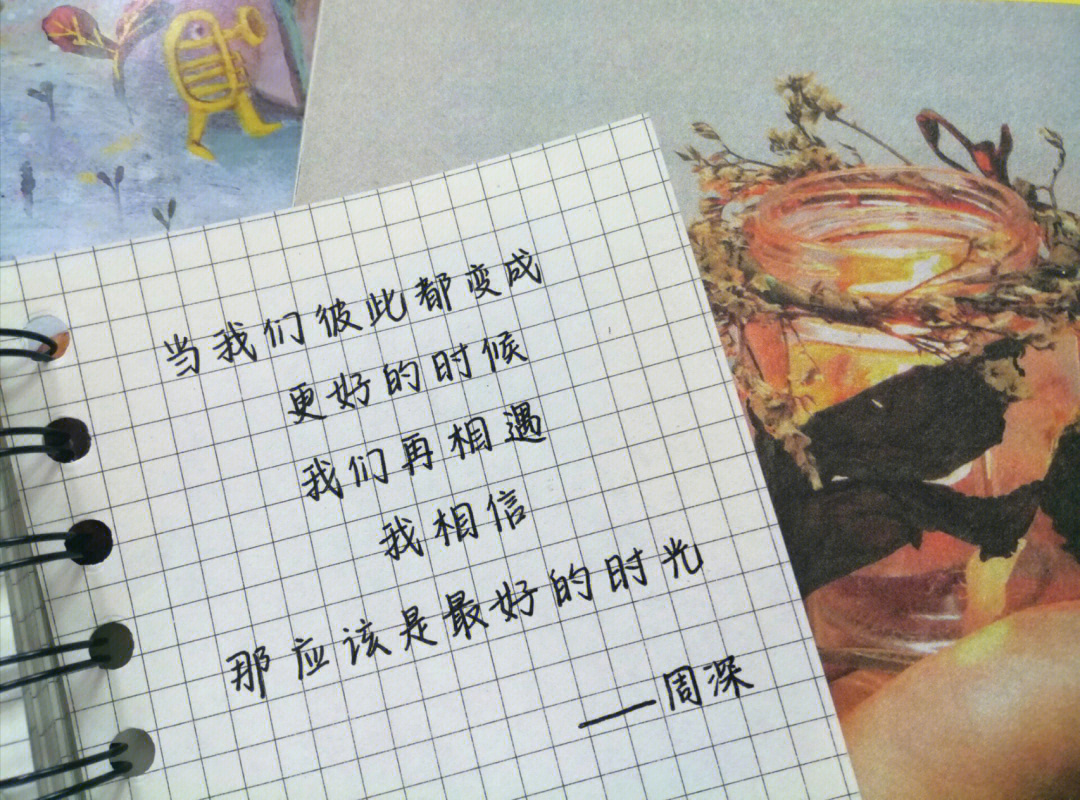 当我们彼此都变成
更好的时候
我们再相遇
我相信
那应该是最好的时光
——周深